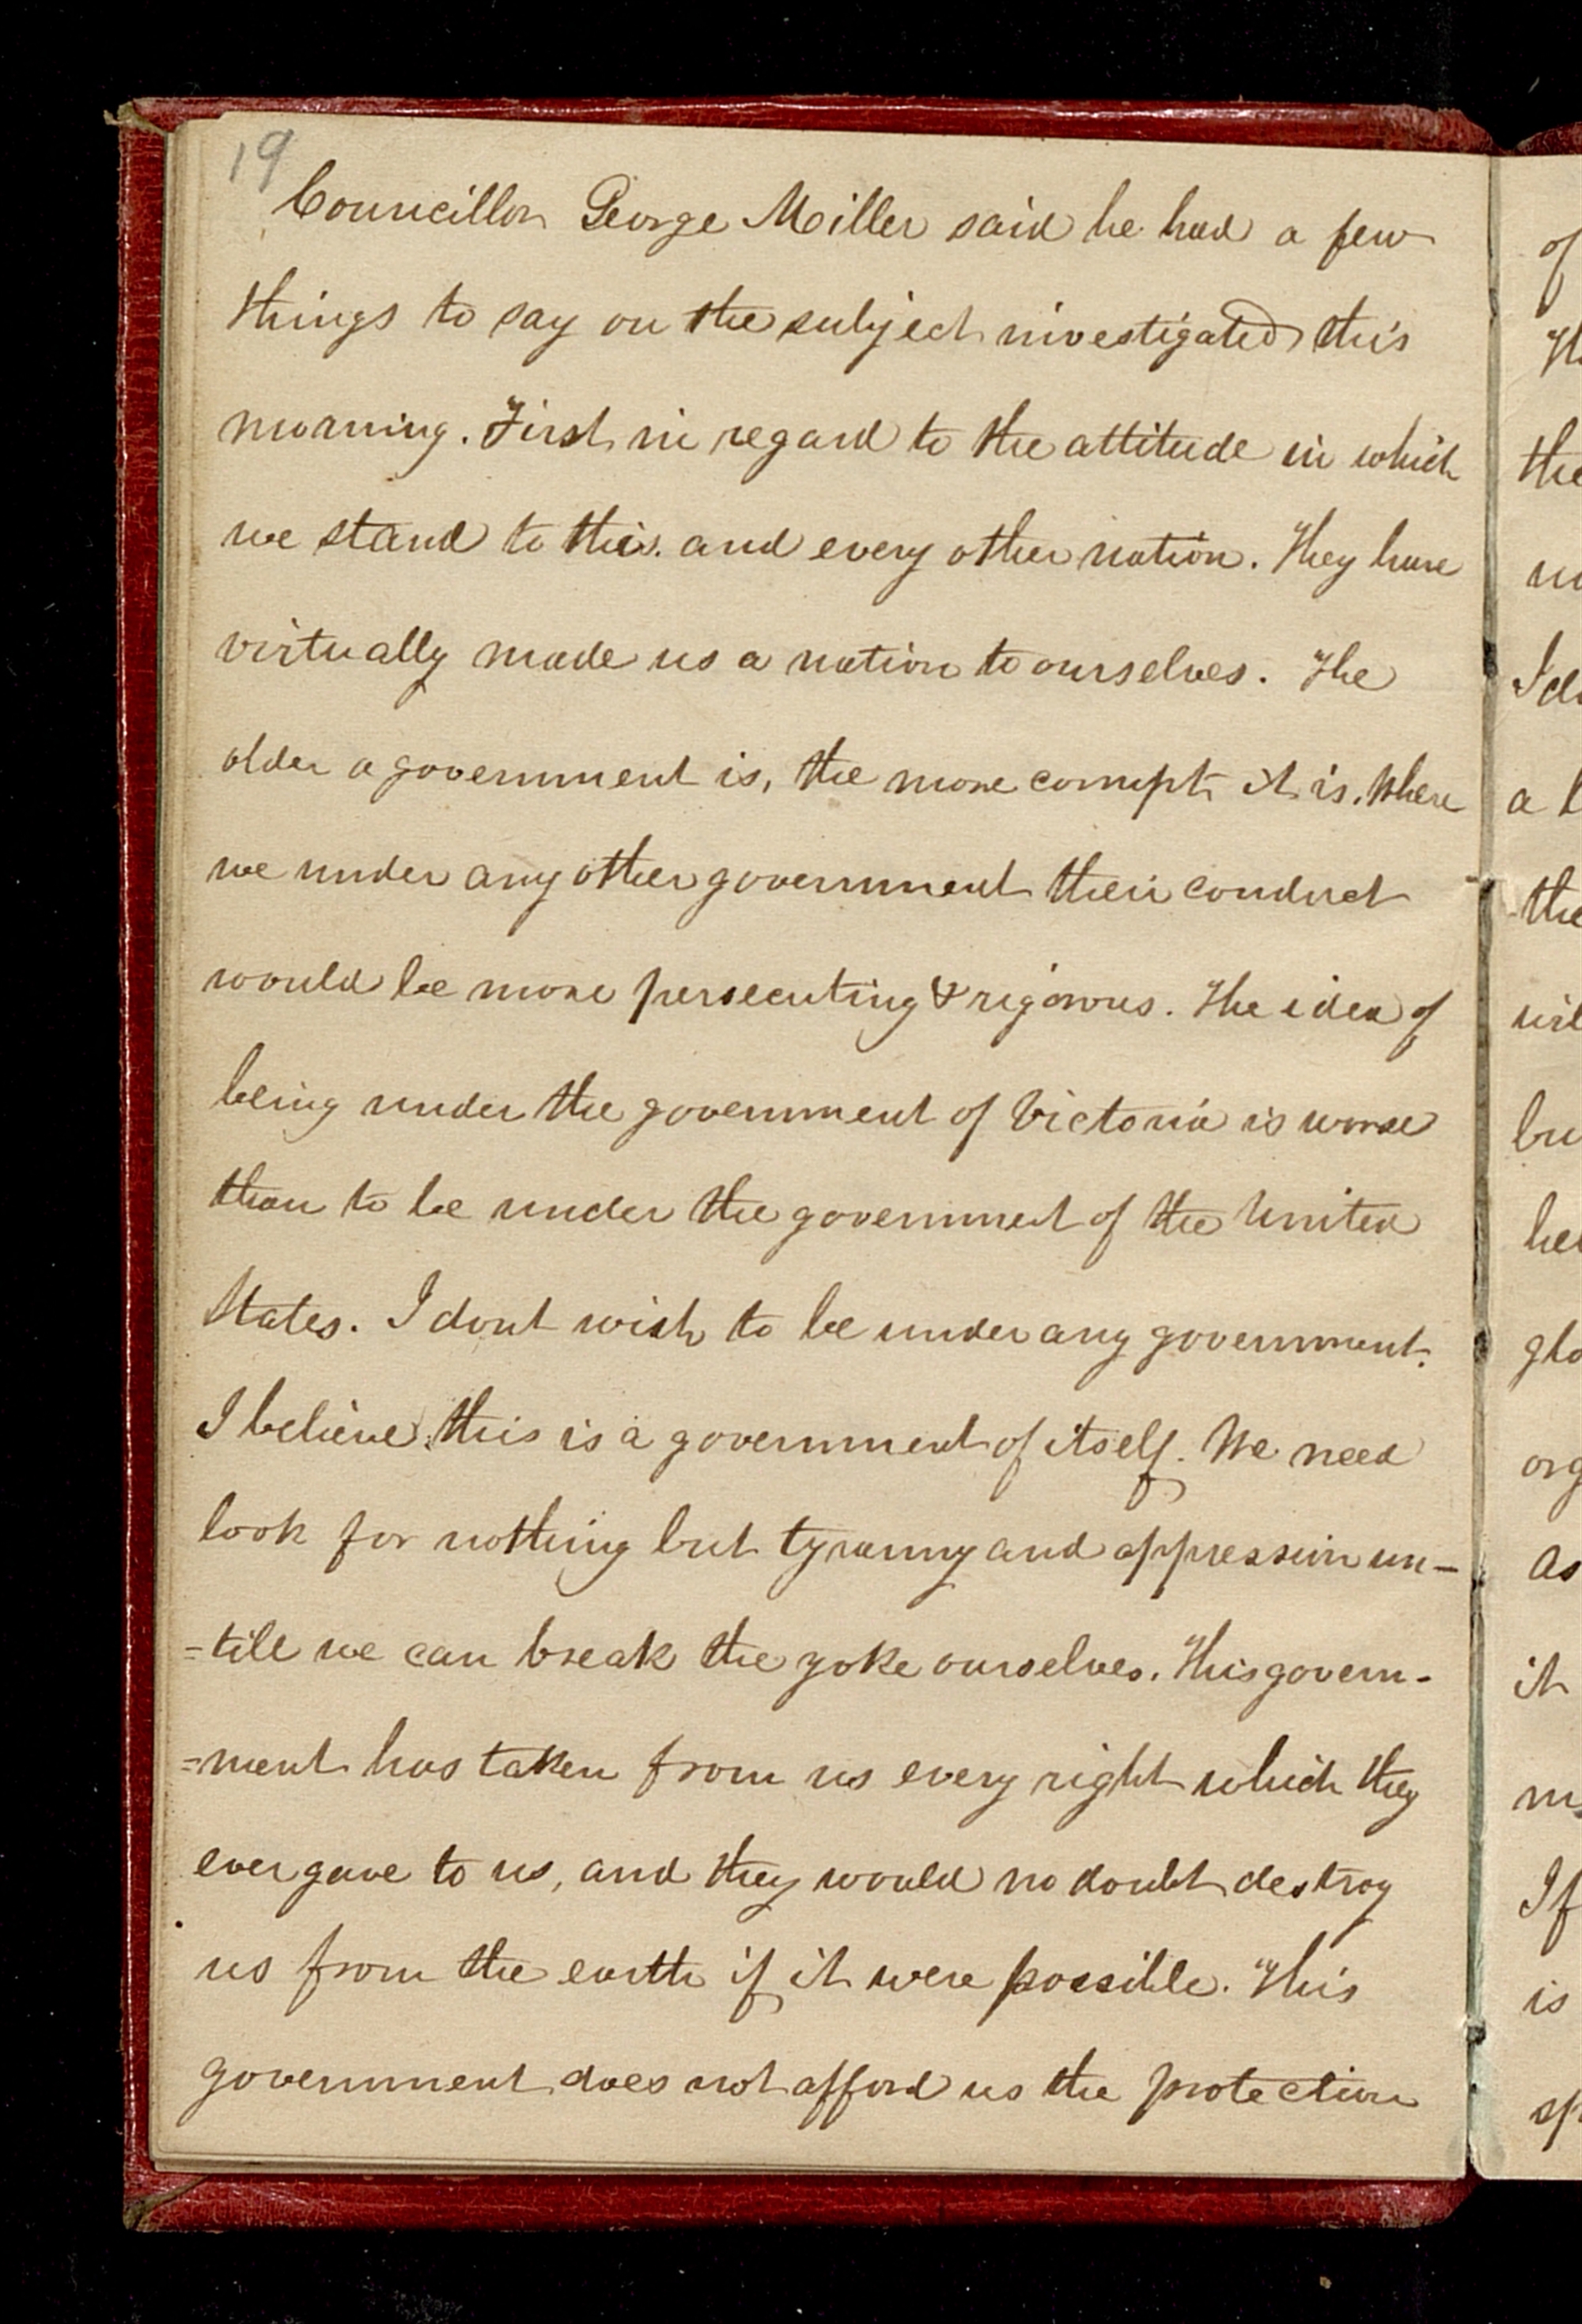 19
Councillor George Miller said he had a few
things to say on the subject investigated this
morning. First in regard to the attitude in which
we stand to this. and every other nation. They have
virtually made us a nation to ourselves. The
older a government is, the more corrupt it is. Where
we under any other government their conduct
would be more persecuting & rigorous. The idea of
being under the government of Victoria is worse
than to be under the government of the United
States. I dont wish to be under any government.
I believe this is a government of itself. We need
look for nothing but tyranny and oppression un-
=till we can break the yoke ourselves. This govern-
=ment has taken from us every right which they
ever gave to us, and they would no doubt destroy
us from the earth if it were possible. This
government does not afford us the protection
of
the
a
the
As
it
If
is